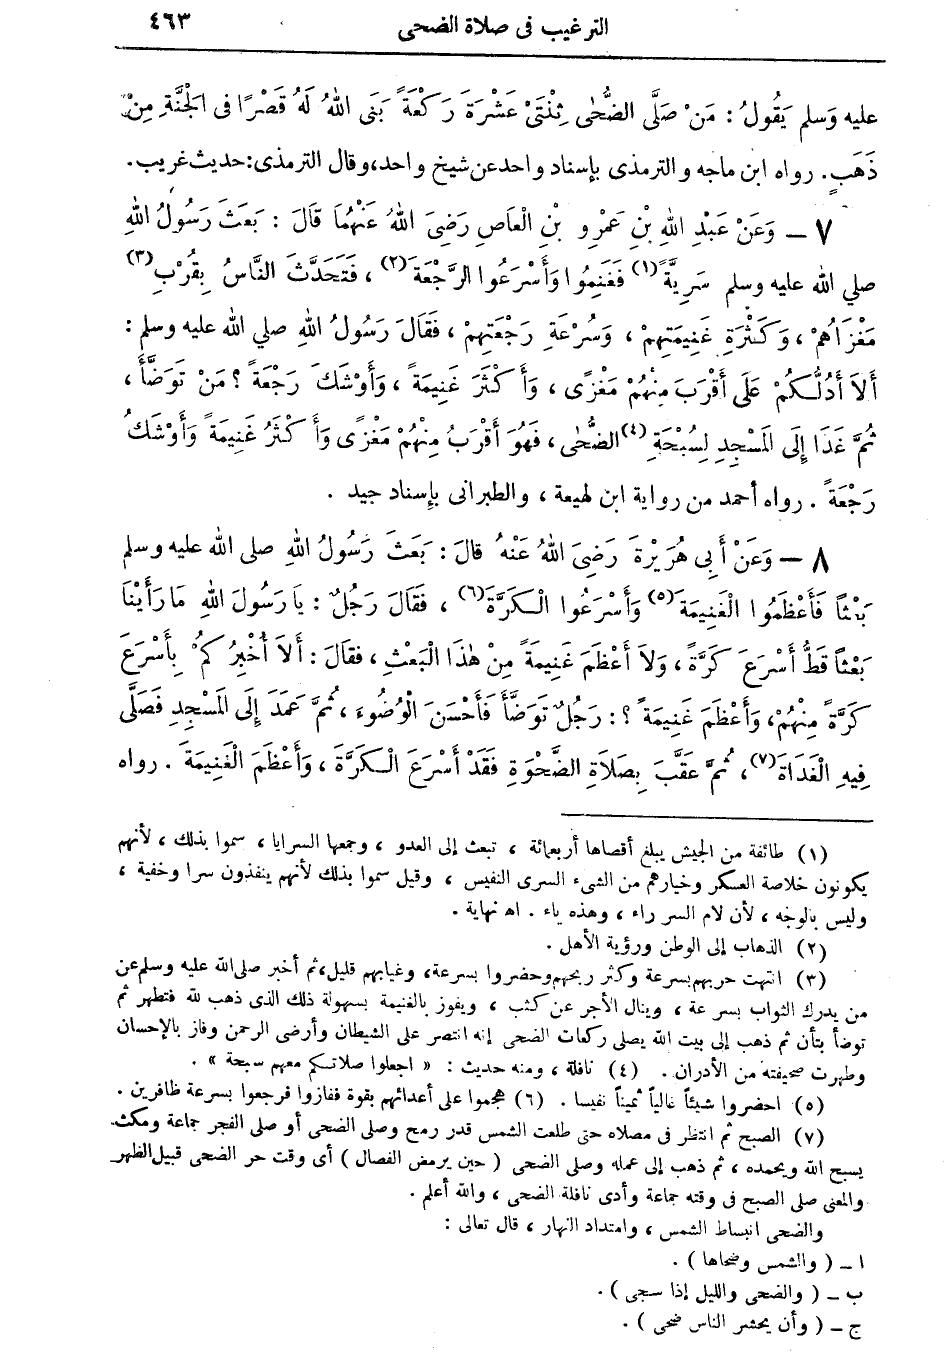 الترغيب فى صلاة الضحى ٤٦٣
عليه وَسلم يَقُولُ : مَنْ صَلَّى الضُّحٰى ثِنْتَىْ عَشْرَةَ رَكْعَةً بَنَى اللهُ لَهُ قَصْرًا فى الْجَنَّةِ مِنْ
ذَهَبٍ. رواه ابن ماجه والترمذى بإسناد واحد عن شيخ واحد، وقال الترمذى: حديث غريب.
٧ – وَعَنْ عَبْدِ اللهِ بْنِ عَمْرِو بْنِ الْعَاصِ رَضِىَ اللهُ عَنْهُمَا قَالَ : بَعَثَ رَسُولُ اللهِ
صلي الله عليه وسلم سَرِيَّةً (١) فَغَنِمُوا وَأَسْرَعُوا الرَّجْعَةَ (٢) ، فَتَحَدَّثَ النَّاسُ بِقُرْبِ (٣)
مَغْزَاهُمْ ، وَكَثْرَةِ غَنِيمَتِهِمْ ، وَسُرْعَةِ رَجْعَتِهِمْ ، فَقَالَ رَسُولُ اللهِ صلي الله عليه وسلم :
أَلاَ أَدُلُّكُمْ عَلَى أَقْرَبَ مِنْهُمْ مَغْزًى ، وَأَكْثَرَ غَنِيمَةً ، وَأَوْشَكَ رَجْعَةً ؟ مَنْ تَوَضَّأَ ،
ثُمَّ غَدَا إِلَى الْمَسْجِدِ لِسُبْحَةِ (٤) الضُّحٰى ، فَهُوَ أَقْرَبُ مِنْهُمْ مَغْزًى وَأَكْثَرُ غَنِيمَةً وَأَوْشَكُ
رَجْعَةً . رواه أحمد من رواية ابن لهيعة ، والطبرانى بإسناد جيد .
٨ – وَعَنْ أَبِى هُرَيْرَةَ رَضِىَ اللهُ عَنْهُ قالَ : بَعَثَ رَسُولُ اللهِ صلى الله عليه وسلم
بَعْثاً فَأَعْظَمُوا الْغَنِيمَةَ (٥) وَأَسْرَعُوا الْكَرَّةَ (٦) ، فَقَالَ رَجُلٌ : يا رَسُولَ اللهِ مَا رَأَيْنَا
بَعْثاً قَطُّ أَسْرَعَ كَرَّةً ، وَلاَ أَعْظَمَ غَنِيمَةً مِنْ هٰذَا الْبَعْثِ ، فقالَ : أَلاَ أُخْبِرُكُمْ بِأَسْرَعَ
كَرَّةً مِنْهُمْ، وَأَعْظَمَ غَنِيمَةً ؟ : رَجُلٌ تَوَضَّأَ فَأَحْسَنَ الْوُضُوءَ ، ثُمَّ عَمَدَ إِلَى الْمَسْجِدِ فَصَلَّى
فِيهِ الْغَدَاةَ (٧) ، ثُمَّ عَقَّبَ بِصَلاَةِ الضَّحْوَةِ فَقَدْ أَسْرَعَ الْكَرَّةَ ، وَأَعْظَمَ الْغَنِيمَةَ . رواه
(١) طائفة من الجيش يبلغ أقصاها أربعمائة ، تبعث إلى العدو ، وجمعها السرايا ، سموا بذلك ، لأنهم
يكونون خلاصة العسكر وخيارهم من الشىء السرى النفيس ، وقيل سموا بذلك لأنهم ينفذون سرا وخفية ،
وليس بالوجه ، لأن لام السر راء ، وهذه ياء . اه نهاية .
(٢) الذهاب إلى الوطن ورؤية الأهل .
(٣) انتهت حربهم بسرعة وكثر ربحهم وحضروا بسرعة، وغيابهم قليل، ثم أخبر صلى الله عليه وسلم عن
من يدرك الثواب بسرعة ، وينال الأجر عن كثب ، ويفوز بالغنيمة بسهولة ذلك الذى ذهب لله فتطهر ثم
توضأ بتأن ثم ذهب إلى بيت الله يصلى ركعات الضحى إنه انتصر على الشيطان وأرضى الرحمن وفاز بالإحسان
وطهرت صحيفته من الأدران . (٤) نافلة ، ومنه حديث : « اجعلوا صلاتكم معهم سبحة » .
(٥) احضروا شيئاً غالياً ثميناً نفيسا . (٦) هجموا على أعدائهم بقوة ففازوا فرجعوا بسرعة ظافرين .
(٧) الصبح ثم انتظر فى مصلاه حتى طلعت الشمس قدر رمح وصلى الضحى أو صلى الفجر جماعة ومكث
يسبح الله ويحمده ، ثم ذهب إلى عمله وصلى الضحى ( حين يرمض الفصال ) أى وقت حر الضحى قبيل الظهر
والمعنى صلى الصبح فى وقته جماعة وأدى نافلة الضحى ، والله أعلم .
والضحى انبساط الشمس ، وامتداد النهار ، قال تعالى :
ا – ( والشمس وضحاها ) .
ب – ( والضحى والليل إذا سجى ) .
ج – ( وأن يحشر الناس ضحى ) .